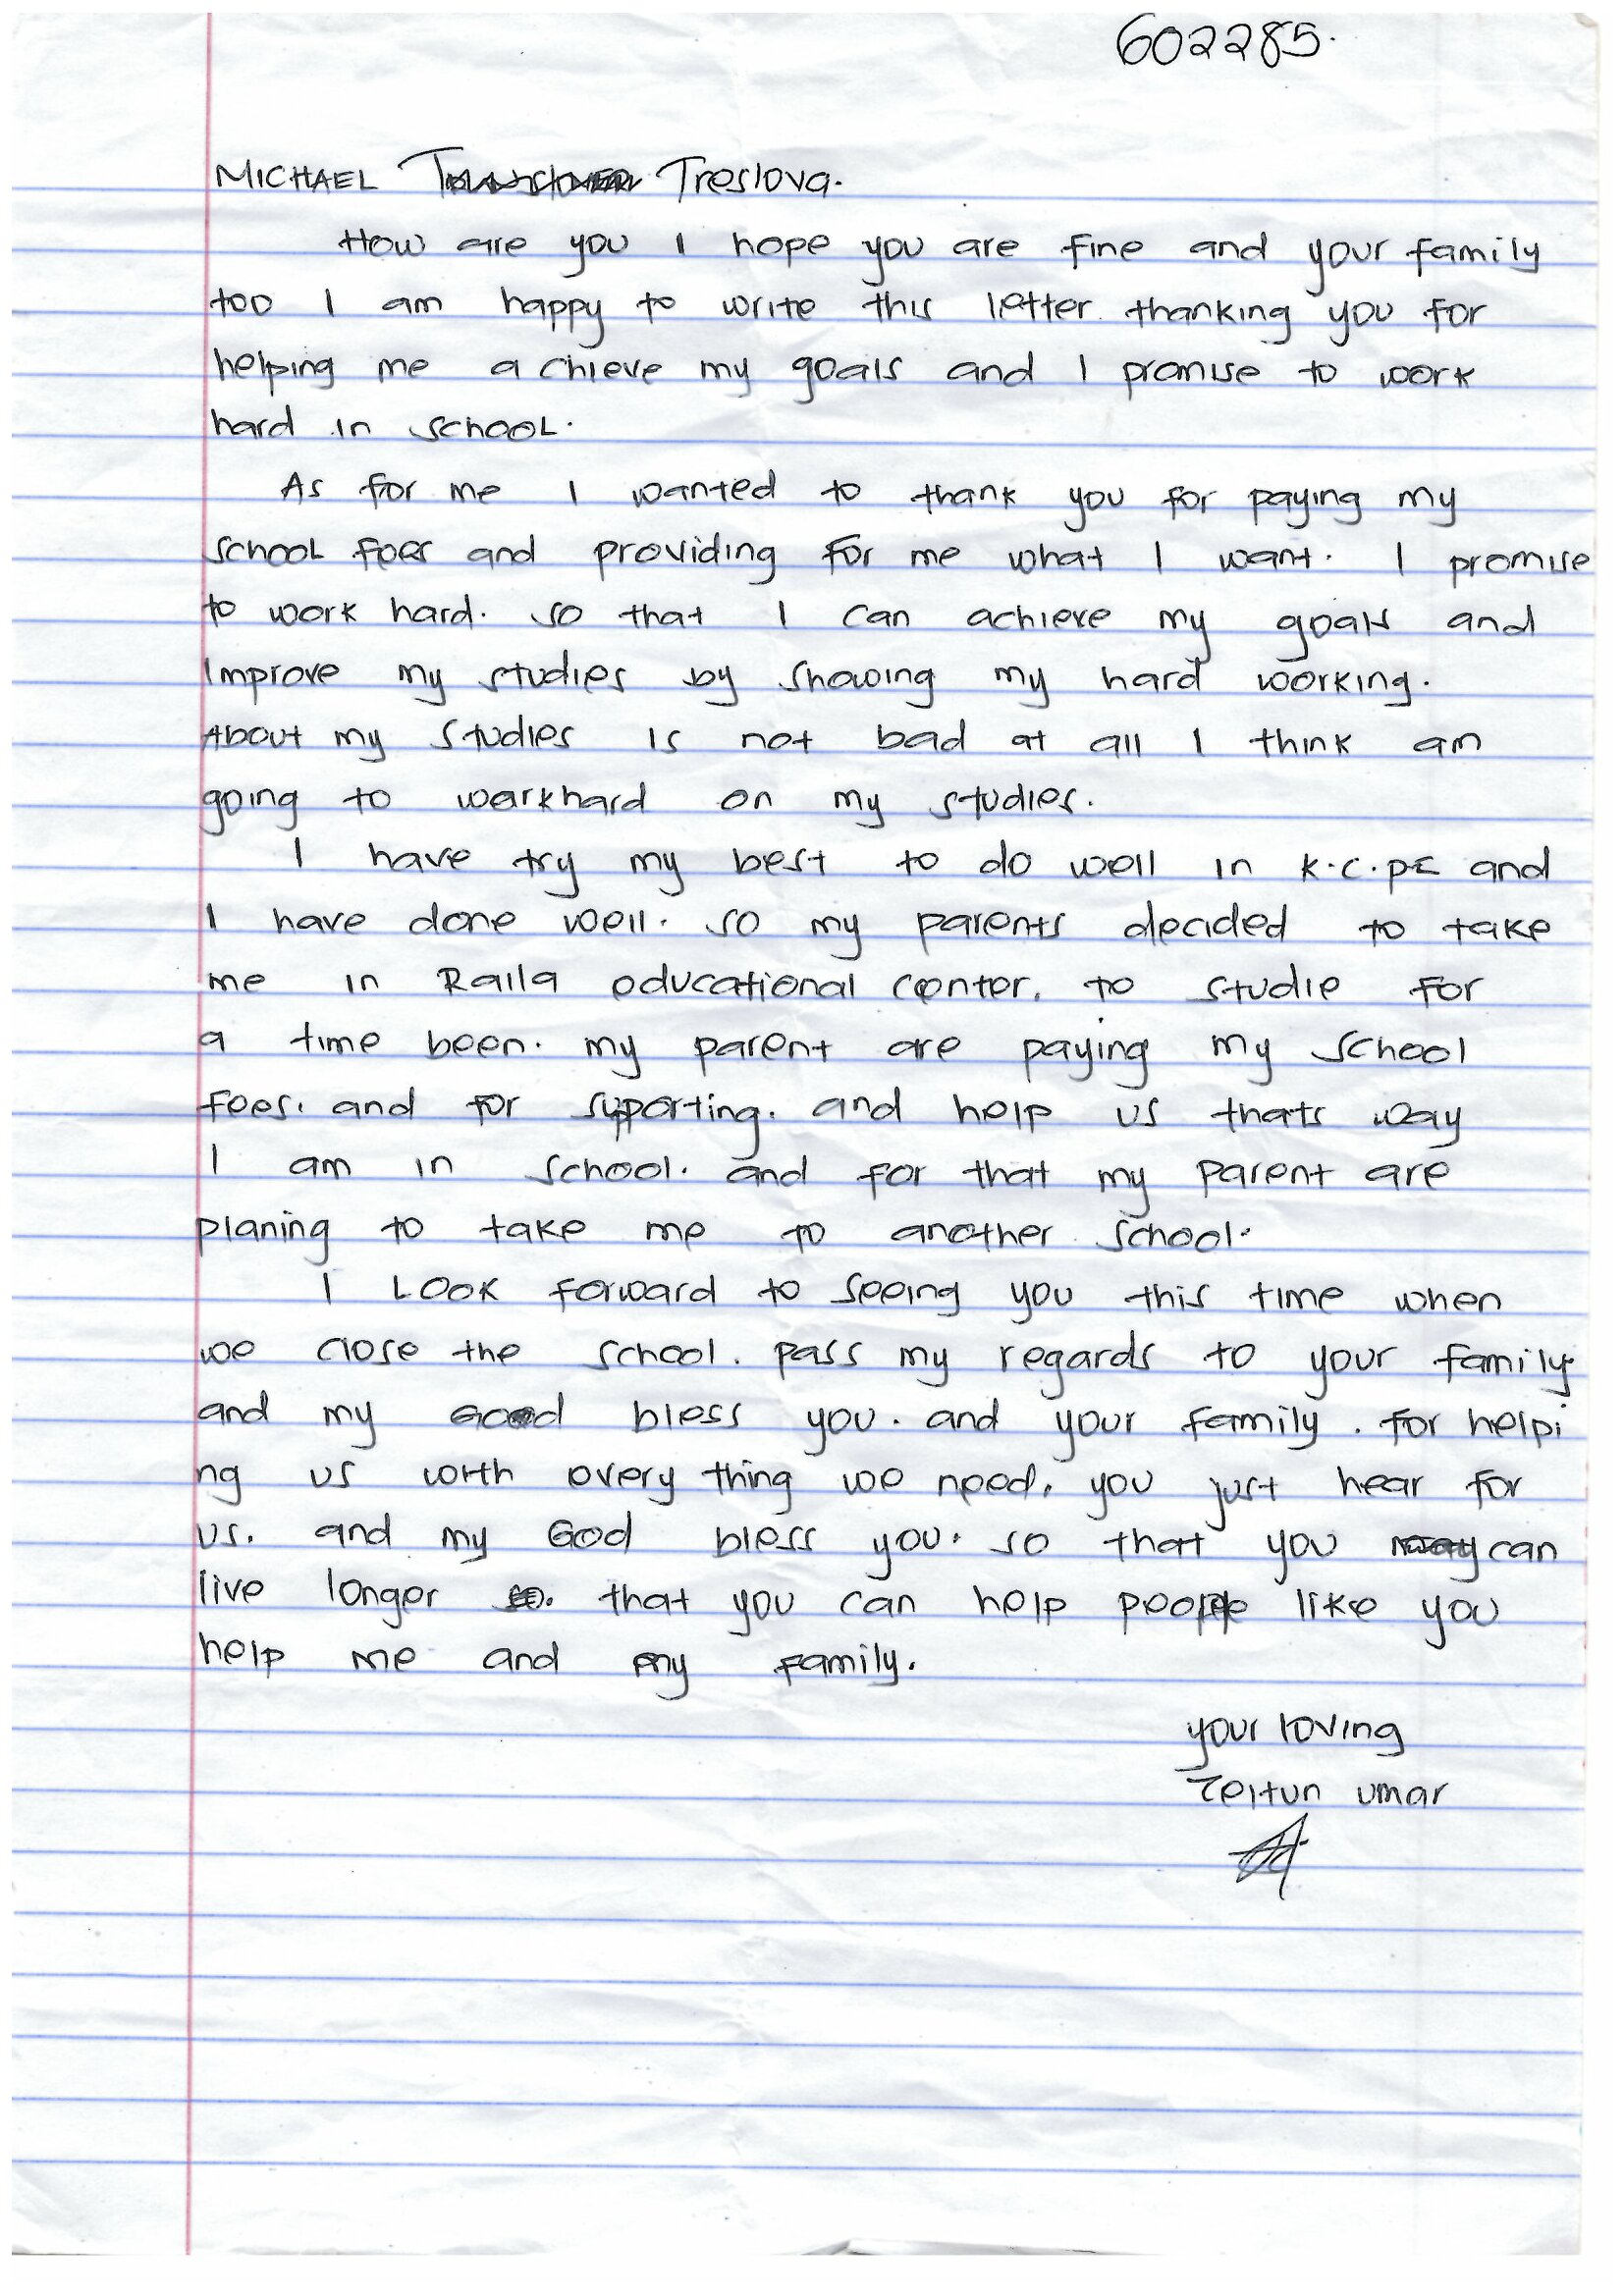 602285.
MICHAEL Treslova.
How are you I hope you are fine and your family
too I am happy to write this letter thanking you for
helping me a chieve my goals and I promise to work
hard in school.
As for me I wanted to thank you for paying my
school fees and providing for me what I want. I promise
to work hard. so that I can achieve my goals and
Improve my studies by showing my hard working.
About my studies is not bad at all I think am
going to workhard on my studies.
I have try my best to do well in K.C.PE and
I have done well. so my parents decided to take
me in Raila educational center. to studie for
a time been. my parent are paying my school
fees. and for supporting. and help us thats way
I am in school. and for that my parent are
planing to take me to another school.
I Look forward to seeing you this time when
we close the school. pass my regards to your family
and my God bless you. and your family. for helpi
ng us with every thing we need. you just hear for
us. and my God bless you. so that you can
live longer that you can help people like you
help me and my family.
your loving
Zeitun umar